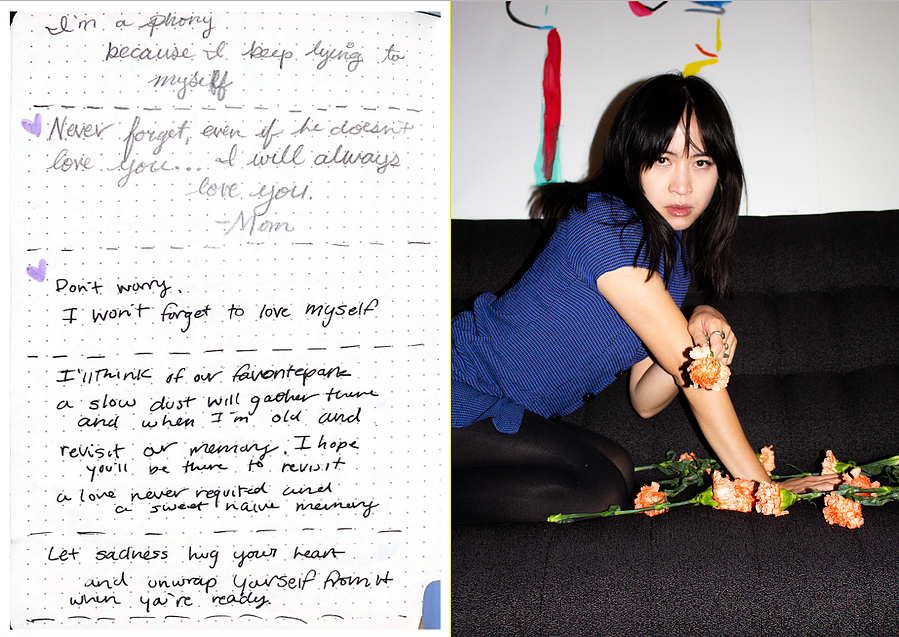 I'm a phony
because I keep lying to
myself
Never forget, even if he doesn't
love you... I will always
love you.
-Mom
Don't worry.
I won't forget to love myself
I'll think of our favorite park
a slow dust will gather there
and when I'm old and
revisit our memory. I hope
you'll be there to revisit
a love never requited and
a sweet naive memory
Let sadness hug your heart
and unwrap yourself from it
when you're ready.